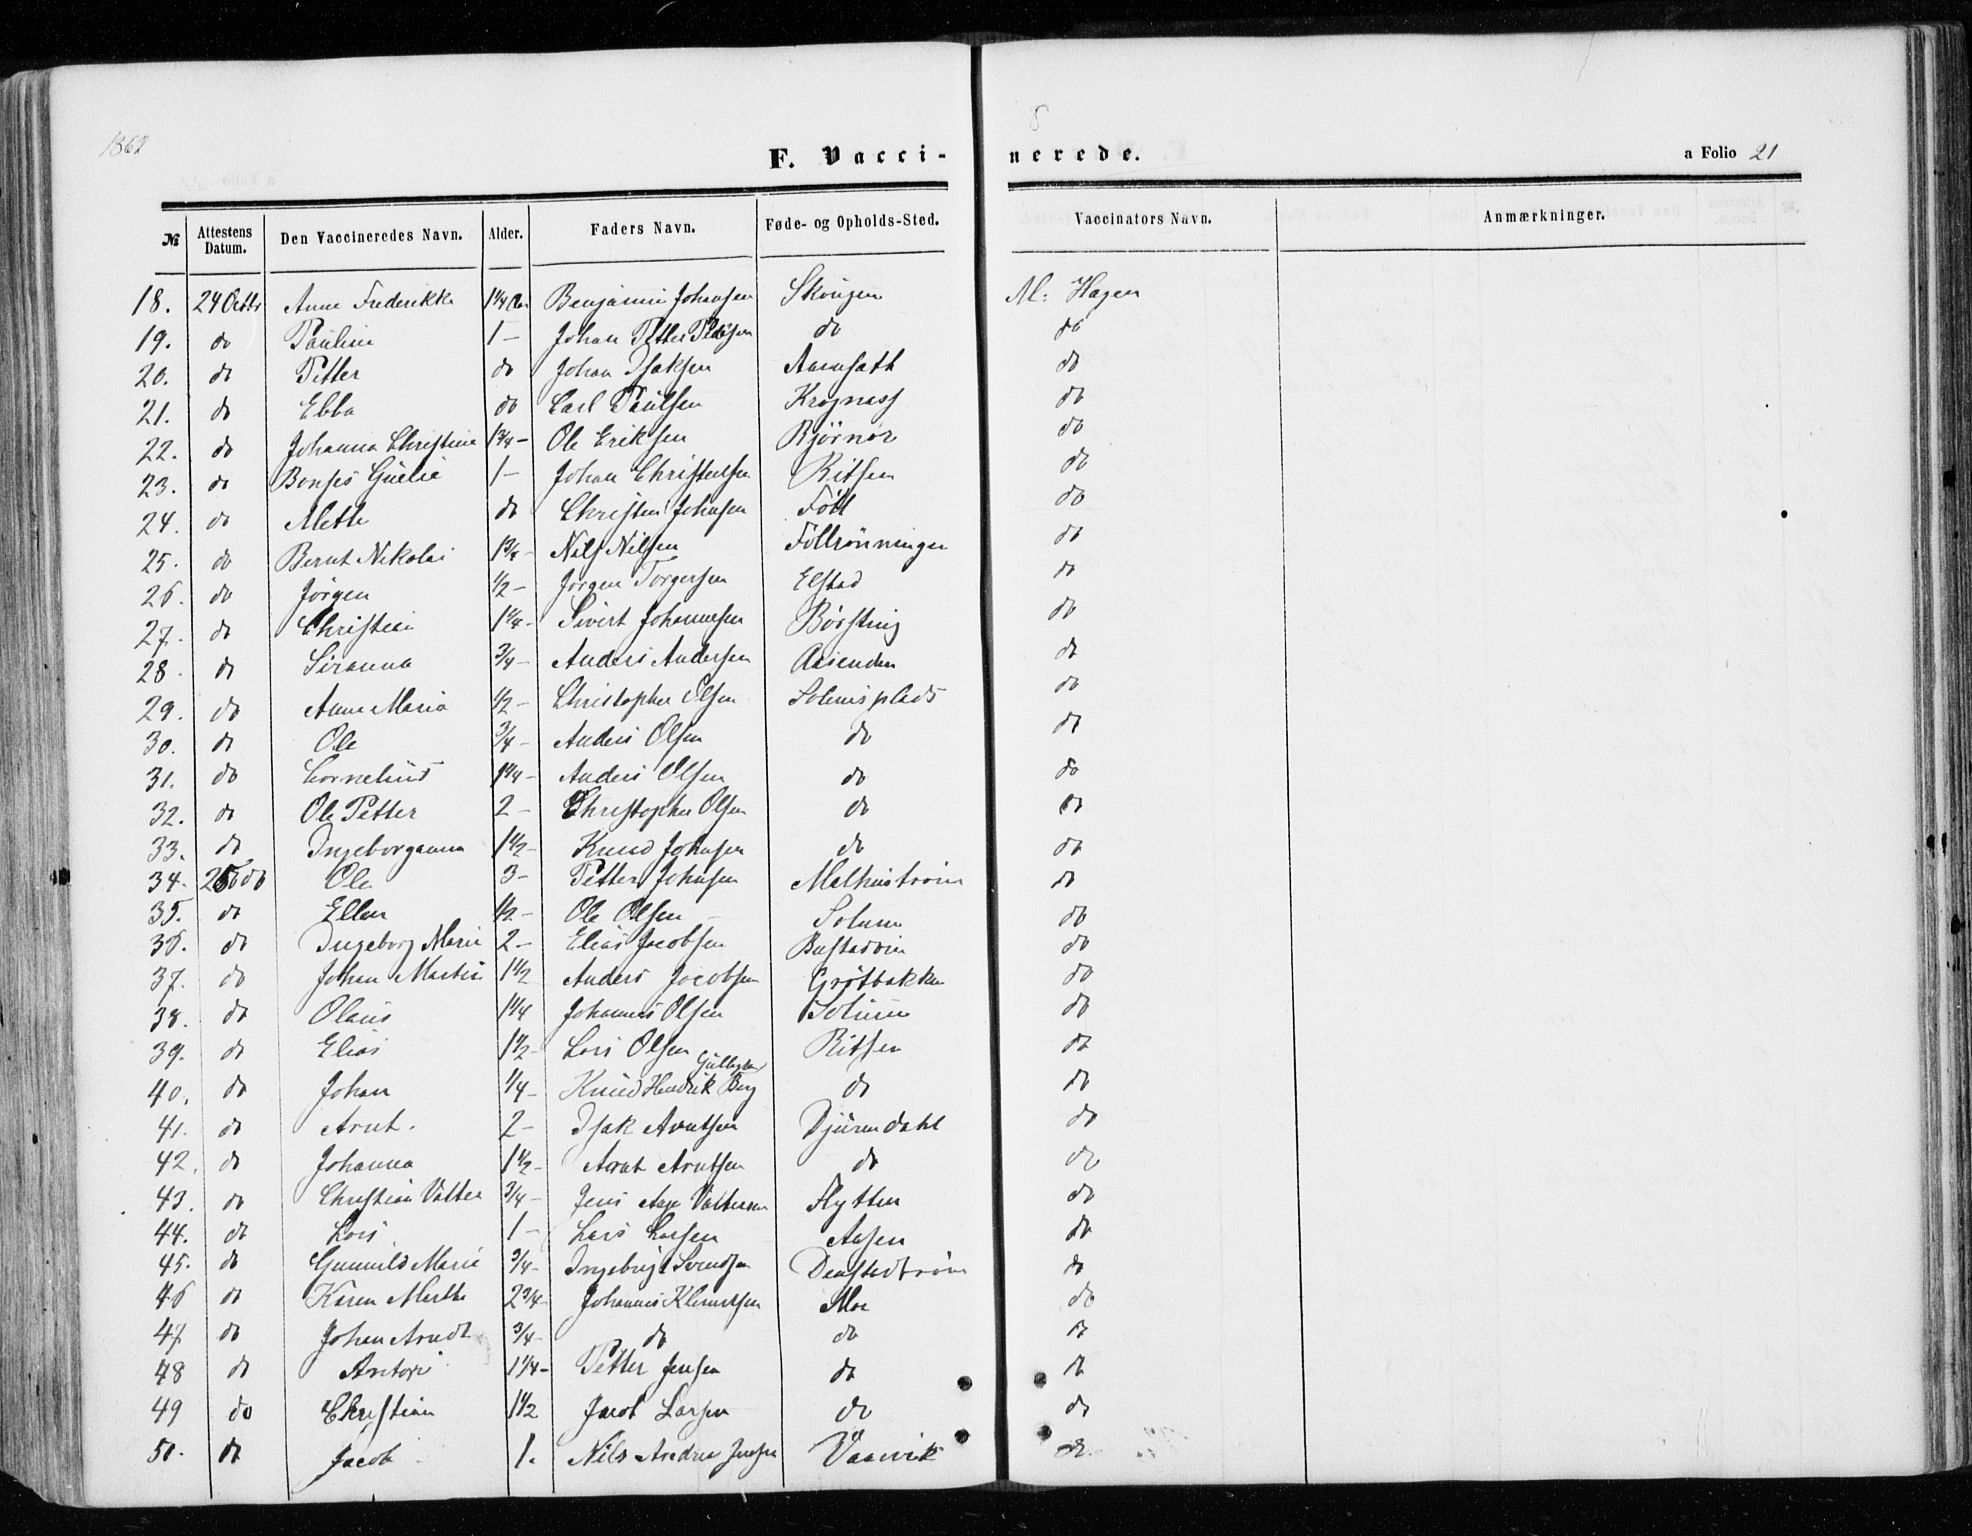 1862
F. Vacci-
nerede.
a Folio 21
№ Attestens Datum. Den Vaccineredes Navn. Alder. Faders Navn. Føde- og Opholds-Sted. Vaccinators Navn. Anmærkninger.
18. 24 Octbr Anne Frederikke 1¼ Aar Benjamin Johansen Skougen M: Hagen
19. do Pauline 1 – Johan Petter do do
20. do Petter do Johan Isaksen do
21. do Ebba do Carl Paulsen Krognæss do
22. do Johanna Christine 1¾ – Ole Eriksen Bjørnør do
23. do 1 – Johan Christensen Ritsen do
24. do Mette do Christen Johnsen do
25. do Bernt Nikolai 1¾ – Nils Nilsen Follrønningen do
26. do Jørgen ½ – Jørgen Torgersen Elstad do
27. do Christian 1¼ – Sivert Johannesen Børsting do
28. do Siranna ¾ – Anders Andersen Aasenden do
29. do Anne Maria ½ – Christopher Olsen Solemsplads do
30. do Ole ¾ – Anders Olsen do do
31. do Cornelius 1¼ – Anders Olsen do do
32. do Ole Petter 2 – Christopher Olsen do do
33. do Ingeborganna 1½ – Knud Johnsen do do
34. do Ole 3 – Petter Johnsen do
35. do Ellen ½ – Ole Olsen Solum do
36. do Ingeborg Marie 2 – Elias Jacobsen do
37. do Johan Martin 1½ Anders Jacobsen Grøtbakken do
38. do Olaus 1¼ Johannes Olsen Solum do
39. do Elias 1½ – Lars Olsen Ritsen do
40. do Johan ¼ – Knud Hendrik Berg do do
41. do Arnt. 2 – Isak Arntsen Djurendahl do
42. do Johanna 1½ – Arnt Arntsen do do
43. do Christian Valter ¾ – Jens Aage Valtersen Flytten do
44. do Lars 1 – Lars Larsen Aasen do
45. do Gunnild Marie ¾ – Ingebrigt Svendsen Denstadtrøen do
46 do Karen Mertha 2¾ – Johannes Klemetsen Moe do
47. do Johan Arndt ¾ – do do do
48 do Anton 1¼ – Petter Jensen do do
49 do Christian 1½ Jacob Larsen do do
50. do Jacob 1. Nils Andrea Jensen Vaavik do.